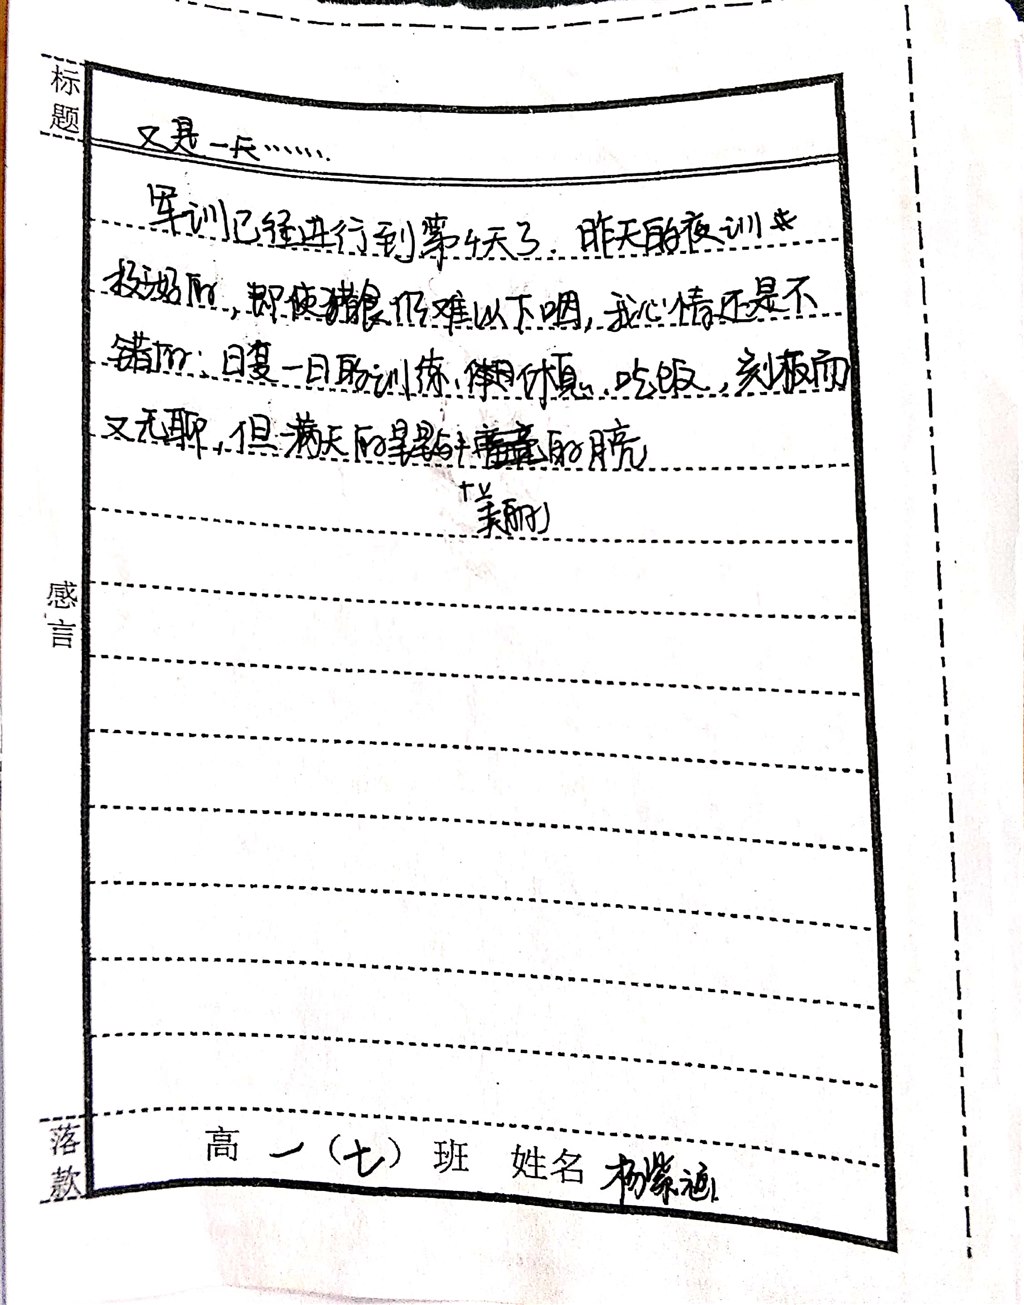 标题
又是一天……
军训已经进行到第4天了.昨天的夜训
挺好的,即使猪食仍难以下咽,我心情还是不
错的.日复一日的训练、休息、吃饭,刻板而
又无聊,但满天的星星与十的月亮
十分美丽
感言
落款
高一(七)班 姓名 杨紫涵